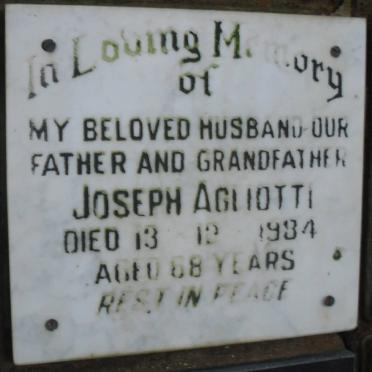 In Loving Memory
of
MY BELOVED HUSBAND OUR
FATHER AND GRANDFATHER
JOSEPH AGLIOTTI
DIED 13 12 1984
AGED 68 YEARS
REST IN PEACE